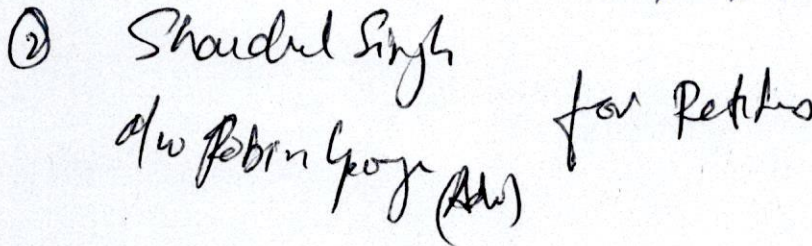 ② Shardul Singh
a/w Robin George (Adv) for Petitioner